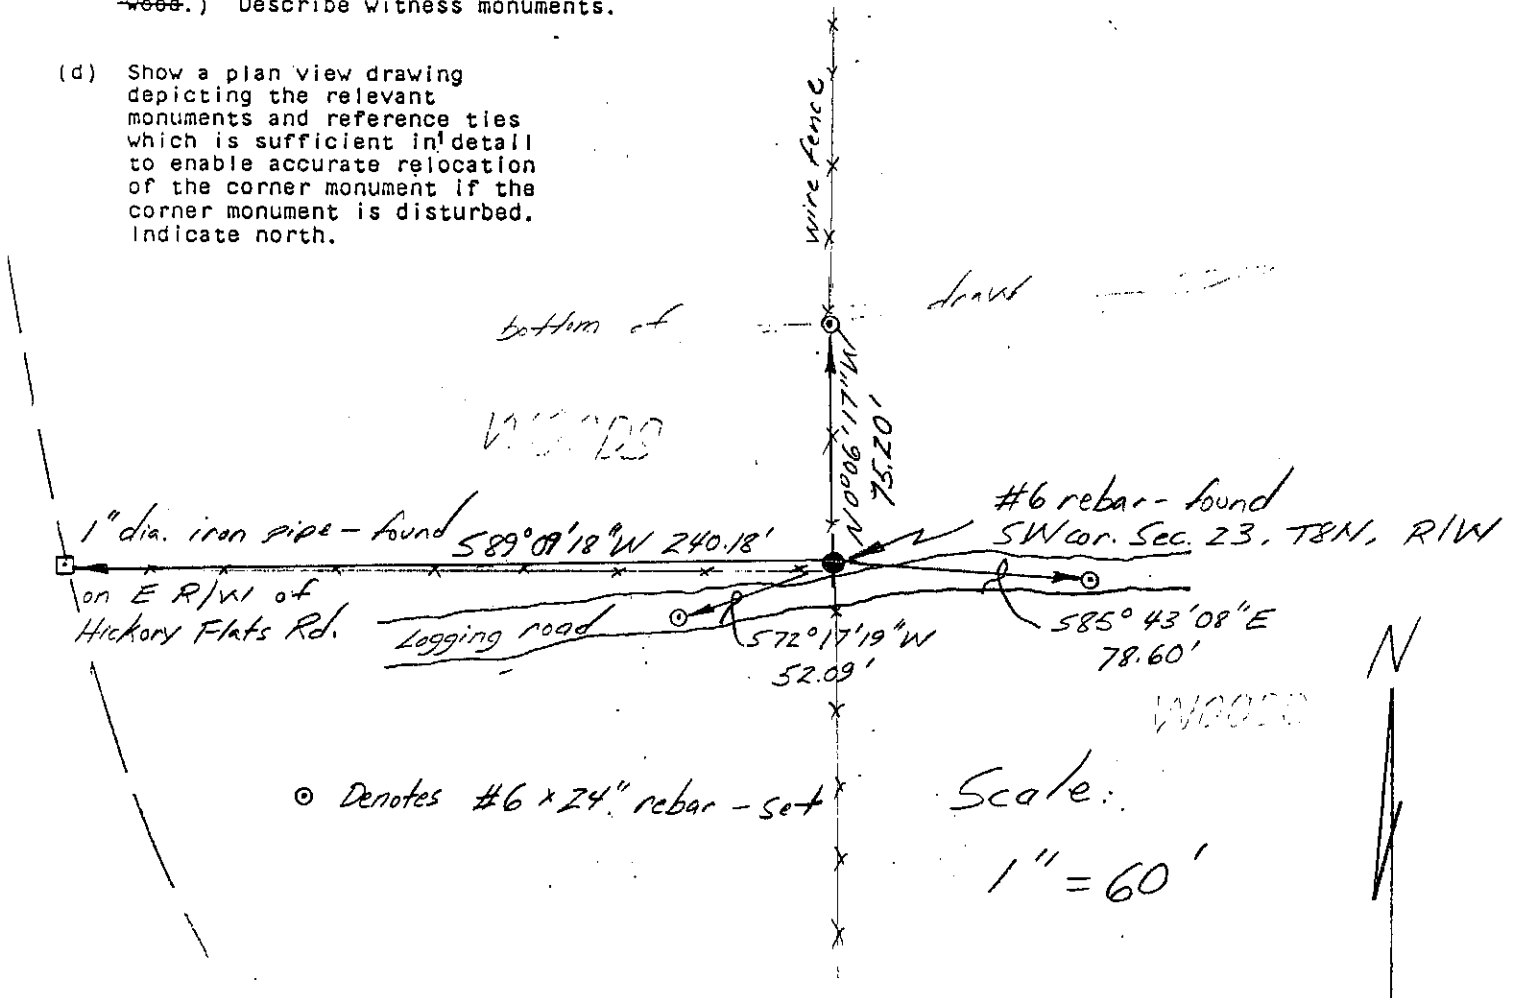 wood.) Describe witness monuments.
(d) Show a plan view drawing
depicting the relevant
monuments and reference ties
which is sufficient in detail
to enable accurate relocation
of the corner monument if the
corner monument is disturbed.
Indicate north.
wire fence
bottom of draw
WOODS
N0°06'17"W
75.20'
#6 rebar - found
SW cor. Sec. 23, T8N, R1W
1" dia. iron pipe - found
S89°09'18"W 240.18'
on E R/W of
Hickory Flats Rd.
Logging road
S72°17'19"W
52.09'
S85°43'08"E
78.60'
N
WOODS
⊙ Denotes #6 x 24" rebar - set
Scale:
1" = 60'